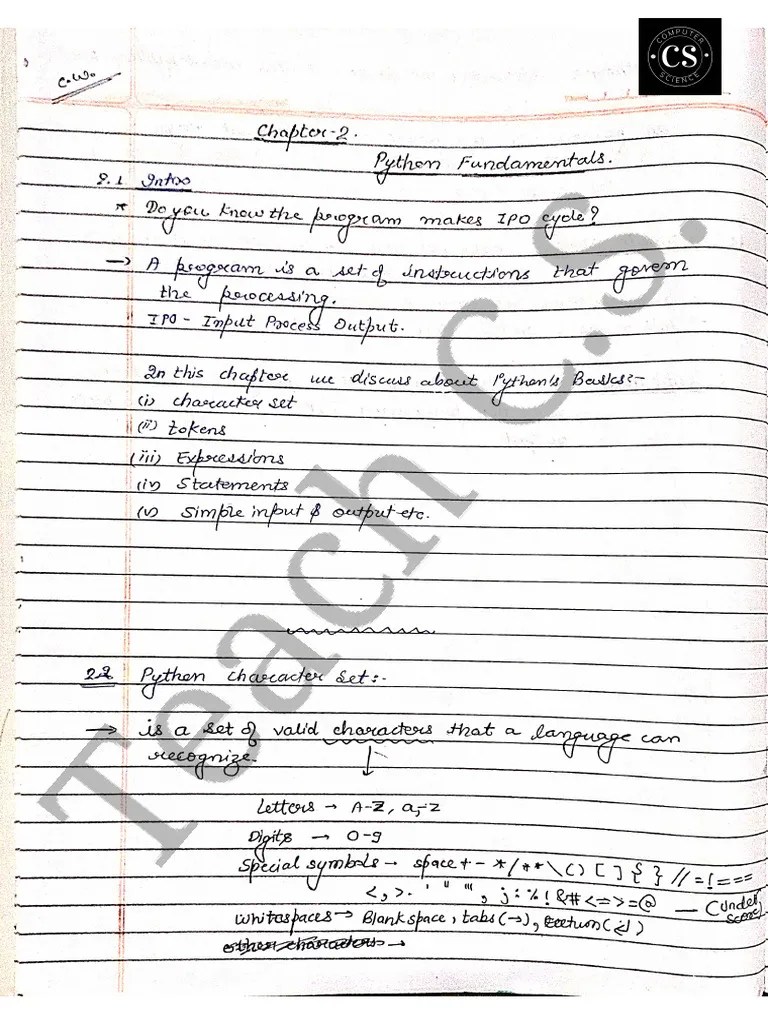 COMPUTER
CS
SCIENCE
C.W.
Chapter-2.
Python Fundamentals.
2.1 Intro
* Do you know the program makes IPO cycle?
→ A program is a set of instructions that govern
the processing.
IPO - Input Process Output.
In this chapter we discuss about Python's Basics:-
(i) character set
(ii) tokens
(iii) Expressions
(iv) Statements
(v) Simple input & output etc.
2.2 Python character Set:-
→ is a set of valid characters that a language can
recognize.
Letters → A-Z, a-z
Digits → 0-9
Special symbols → space + - * / ** \ ( ) [ ] { } // = != ==
<, >. ' " ''', ; : % ! & # <= >= @ — (Under
score)
Whitespaces → Blank space, tabs (→), return (↵)
other characters →
Teach C.S.